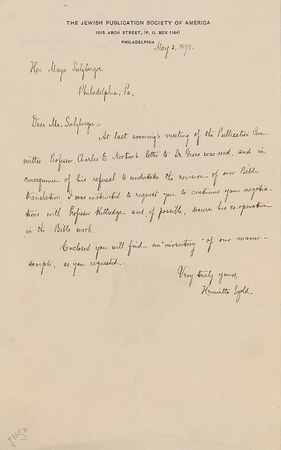 THE JEWISH PUBLICATION SOCIETY OF AMERICA
1015 ARCH STREET, (P. O. BOX 1164)
PHILADELPHIA
May 2, 1898.
Hon. Mayer Sulzberger
Philadelphia, Pa.
Dear Mr. Sulzberger:-
At last evening's meeting of the Publication Com-
mittee Professor Charles E. Norton's letter to Dr. Gross was read, and in
consequence of his refusal to undertake the revision of our Bible
translation I was instructed to request you to continue your negotia-
tions with Professor Kittredge and, if possible, secure his co-operation
in the Bible work.
Enclosed you will find an "inventory" of our manu-
scripts, as you requested.
Very truly yours,
Henrietta Szold.